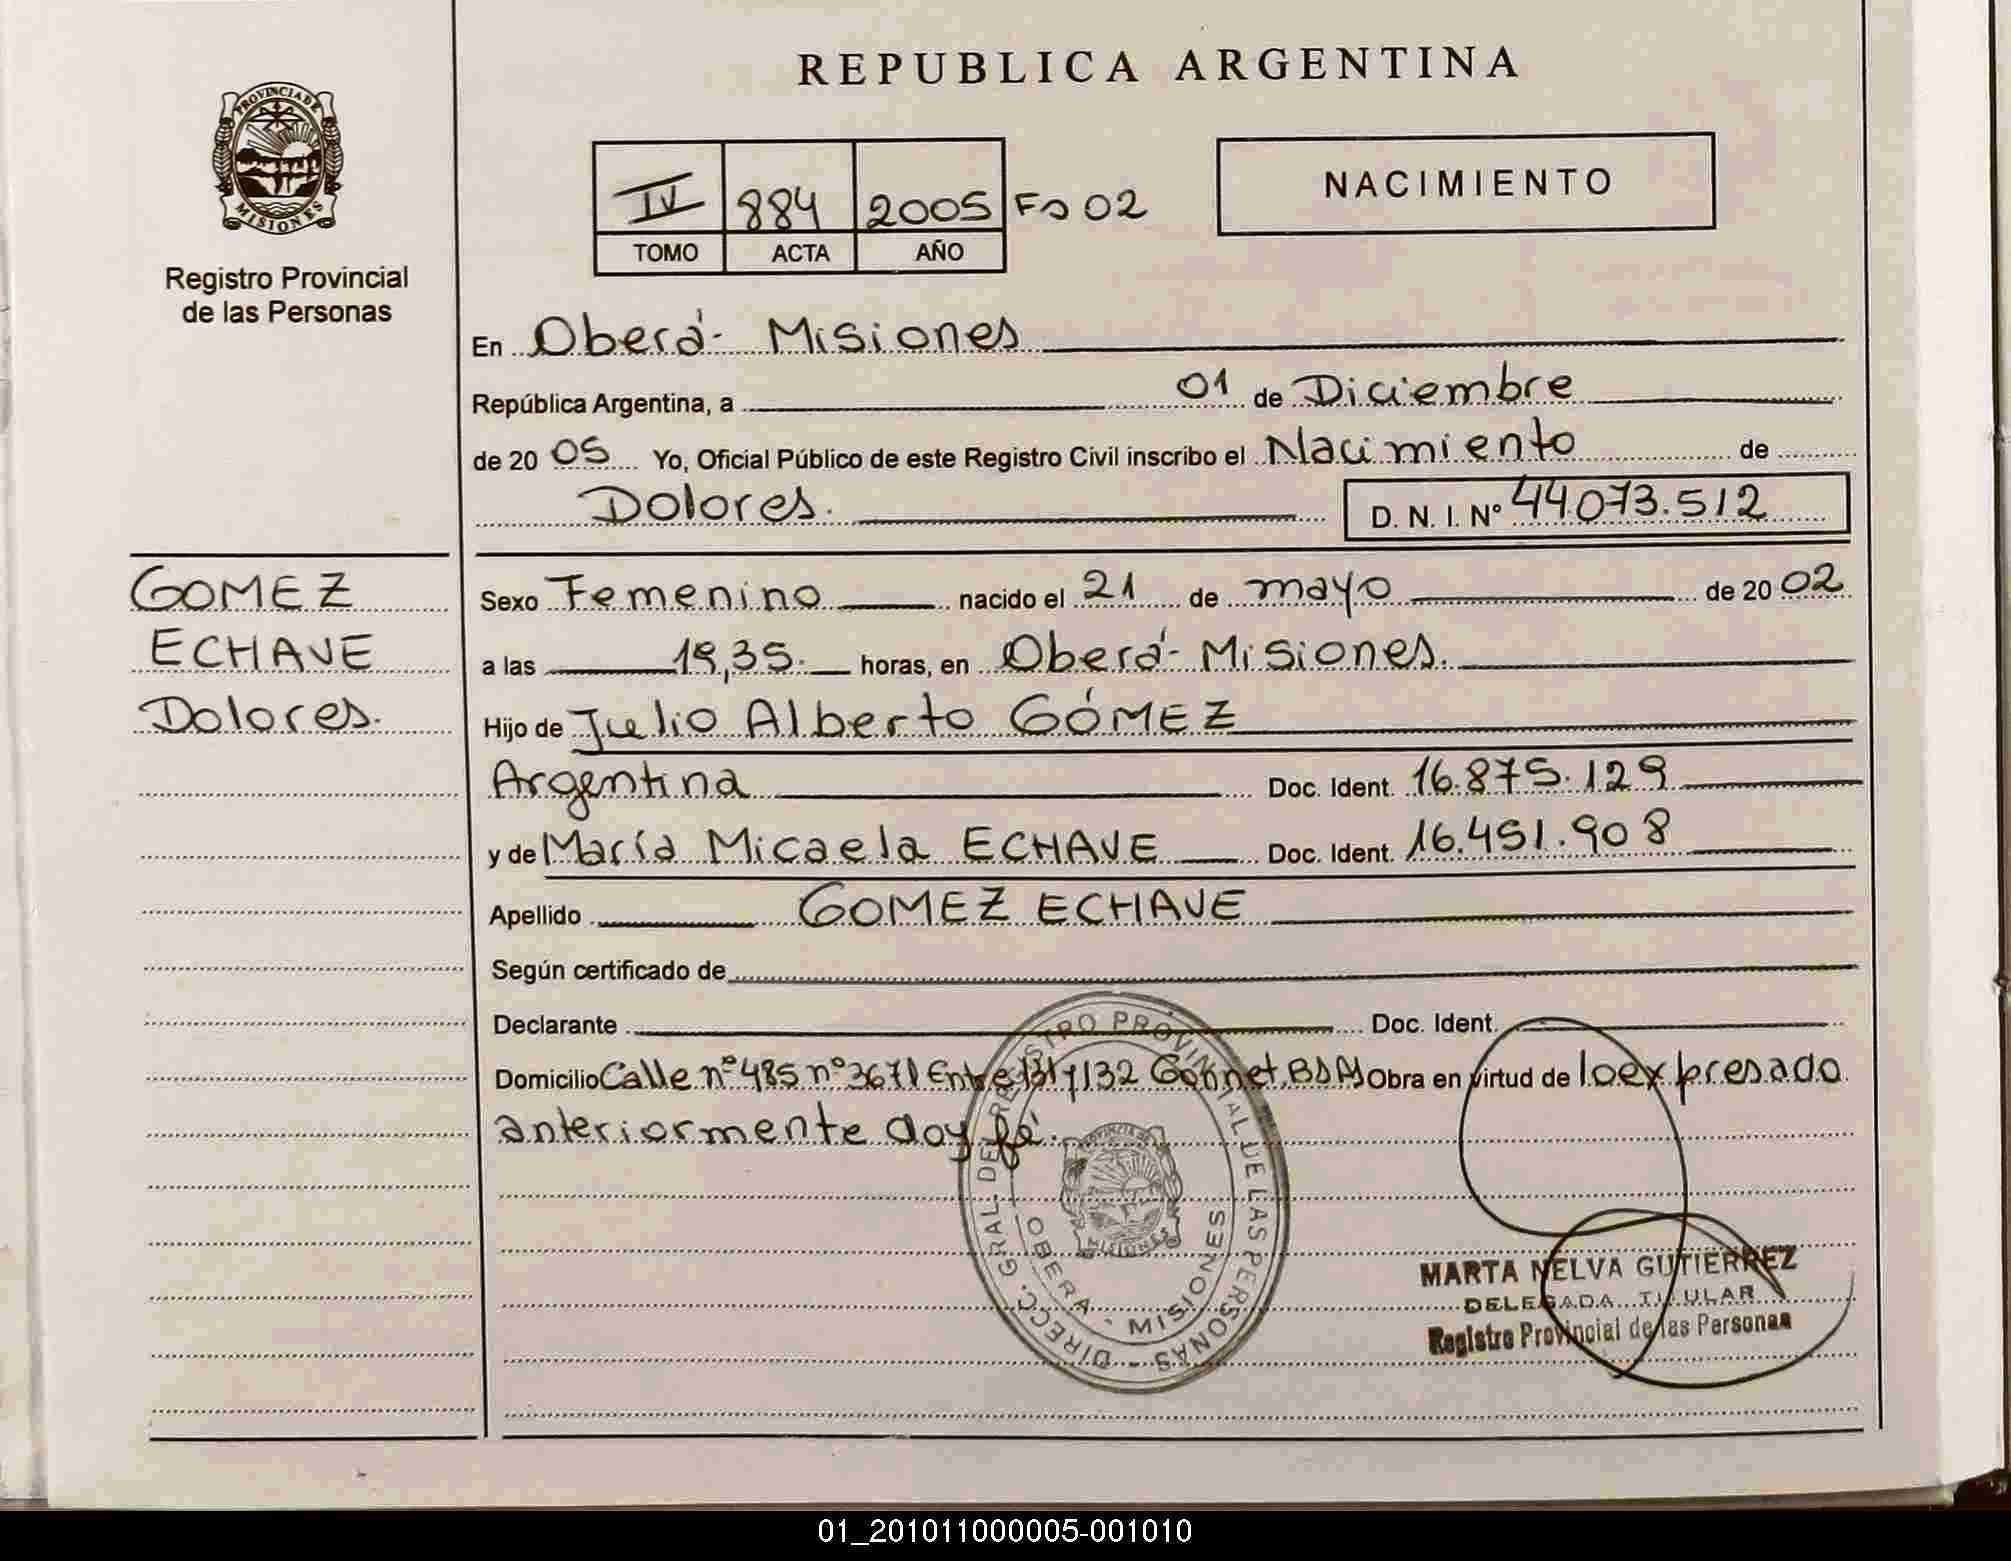 REPUBLICA ARGENTINA
PROVINCIA DE MISIONES
Registro Provincial
de las Personas
IV 884 2005 Fo 02
TOMO ACTA AÑO
NACIMIENTO
En Oberá - Misiones
República Argentina, a 01 de Diciembre
de 20 05 Yo, Oficial Público de este Registro Civil inscribo el Nacimiento de
Dolores. D. N. I. Nº 44.073.512
GOMEZ
ECHAVE
Dolores.
Sexo Femenino nacido el 21 de mayo de 20 02
a las 19,35. horas, en Oberá - Misiones.
Hijo de Julio Alberto GÓMEZ
Argentina Doc. Ident. 16.875.129
y de María Micaela ECHAVE Doc. Ident. 16.451.908
Apellido GOMEZ ECHAVE
Según certificado de
Declarante Doc. Ident.
Domicilio Calle nº 485 nº 3671 Entre 131 y 132 Gonnet, Bs As Obra en virtud de lo expresado
anteriormente doy fé.
DIRECC. GRAL. DE REGISTRO PROVINCIAL DE LAS PERSONAS -
PROVINCIA DE MISIONES
OBERA - MISIONES
MARTA NELVA GUTIERREZ
DELEGADA TITULAR
Registro Provincial de las Personas
01_201011000005-001010